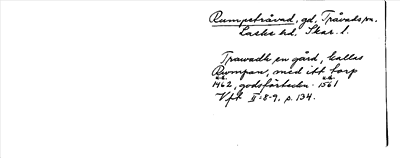 Rumpetråvad, gd, Tråvads sn.
Laske hd. Skar. l.
Trawadh en gård, kallas
Rumpan, med itt torp
1462, godsförteckn. 1561
Vft II:8-9, p. 134.